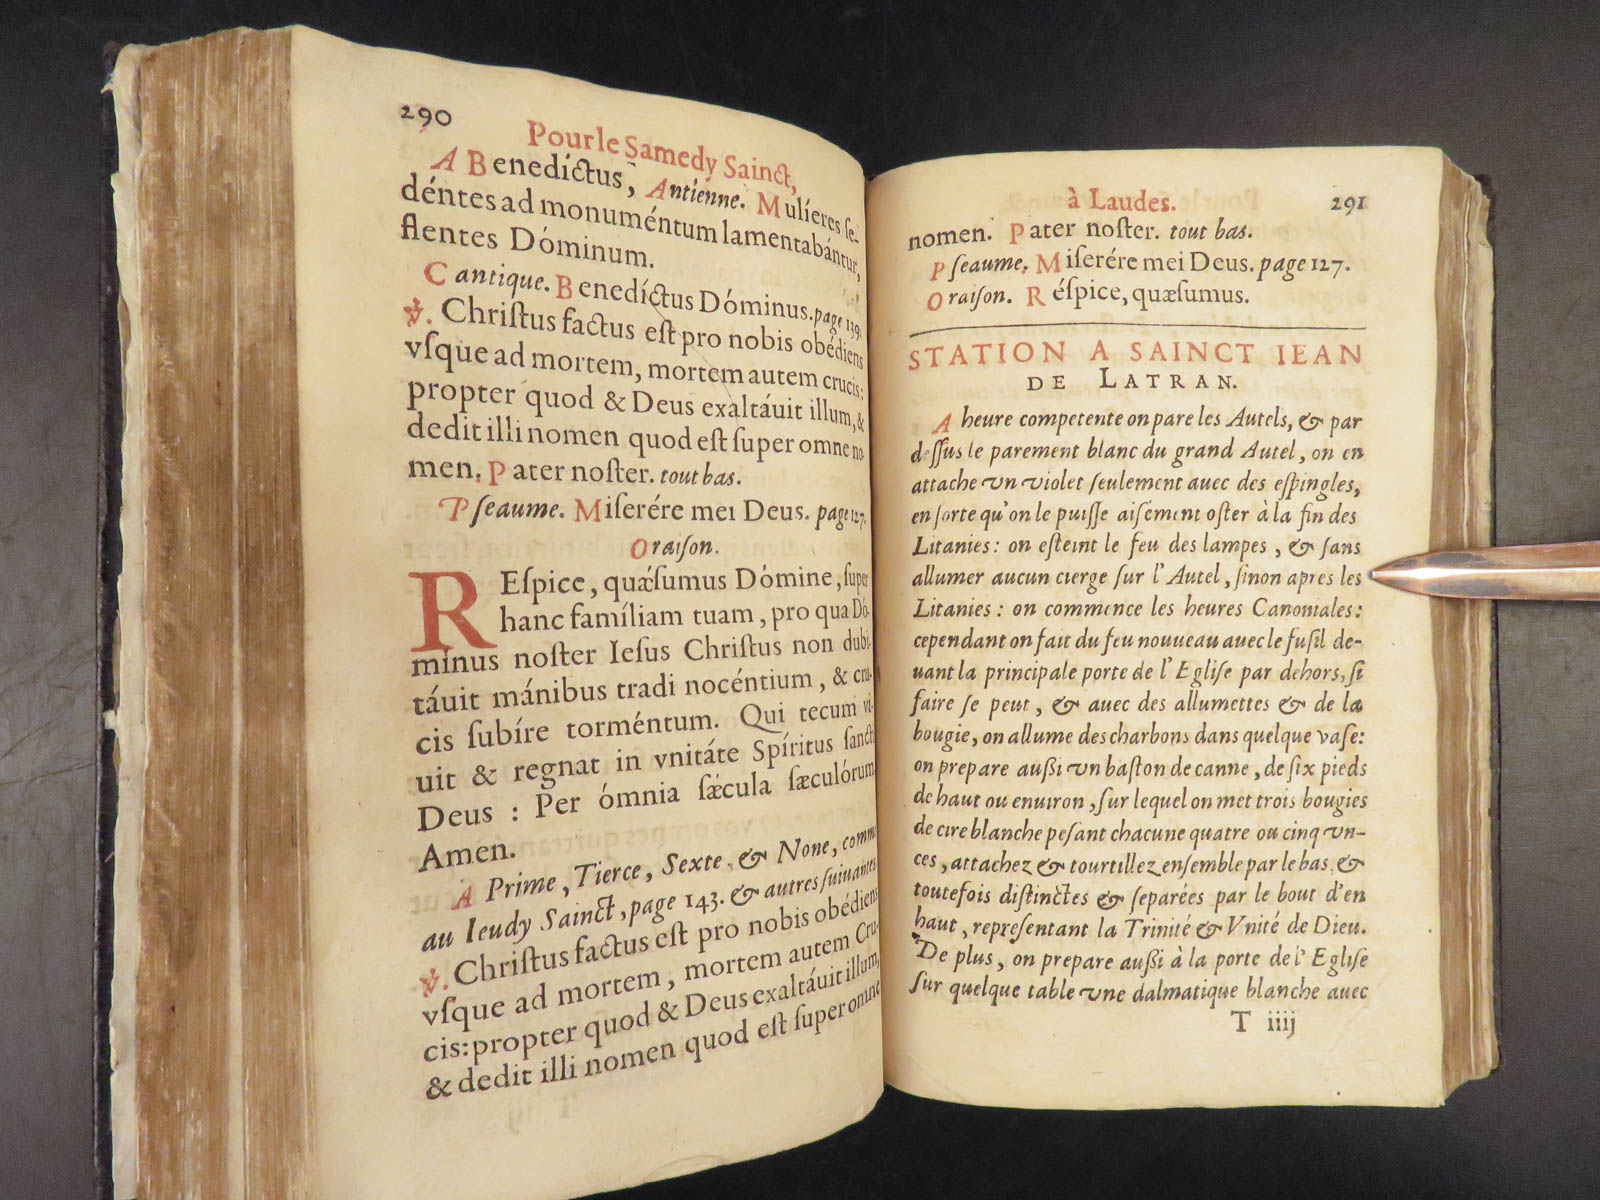 290
Pour le Samedy Sainct,
A Benedíctus, Antiénne. Mulíeres ſe-
déntes ad monuméntum lamentabántur,
flentes Dóminum.
Cantique. Benedíctus Dóminus. page 139.
℣. Chriſtus factus eſt pro nobis obédiens
vſque ad mortem, mortem autem crucis:
propter quod & Deus exaltáuit illum, &
dedit illi nomen quod eſt ſuper omne no-
men. Pater noſter. tout bas.
Pſeaume. Miſerére mei Deus. page 127.
Oraiſon.
REſpice, quǽſumus Dómine, ſuper
hanc famíliam tuam, pro qua Dó-
minus noſter Ieſus Chriſtus non dubi-
táuit mánibus tradi nocéntium, & cru-
cis ſubíre torméntum. Qui tecum vi-
uit & regnat in vnitáte Spíritus ſancti
Deus : Per ómnia ſæcula ſæculórum
Amen.
A Prime, Tierce, Sexte, & None, comme
au Ieudy Sainct, page 143. & autres ſuiuantes
℣. Chriſtus factus eſt pro nobis obédiens
vſque ad mortem, mortem autem Cru-
cis: propter quod & Deus exaltáuit illum,
& dedit illi nomen quod eſt ſuper omne
à Laudes. 291
nomen. Pater noſter. tout bas.
Pſeaume. Miſerére mei Deus. page 127.
Oraiſon. Réſpice, quæſumus.
STATION A SAINCT IEAN
DE LATRAN.
A heure competente on pare les Autels, & par
deſſus le parement blanc du grand Autel, on en
attache vn violet ſeulement auec des eſpingles,
en ſorte qu'on le puiſſe aiſément oſter à la fin des
Litanies: on eſteint le feu des lampes, & ſans
allumer aucun cierge ſur l'Autel, ſinon apres les
Litanies: on commence les heures Canoniales:
cependant on fait du feu nouueau auec le fuſil de-
uant la principale porte de l'Egliſe par dehors, ſi
faire ſe peut, & auec des allumettes & de la
bougie, on allume des charbons dans quelque vaſe:
on prepare auſſi vn baſton de canne, de ſix pieds
de haut ou enuiron, ſur lequel on met trois bougies
de cire blanche peſant chacune quatre ou cinq vn-
ces, attachez & tourtillez enſemble par le bas, &
toutefois diſtinctes & ſeparées par le bout d'en
haut, repreſentant la Trinité & Vnité de Dieu.
De plus, on prepare auſſi à la porte de l'Egliſe
ſur quelque table vne dalmatique blanche auec
T iiij